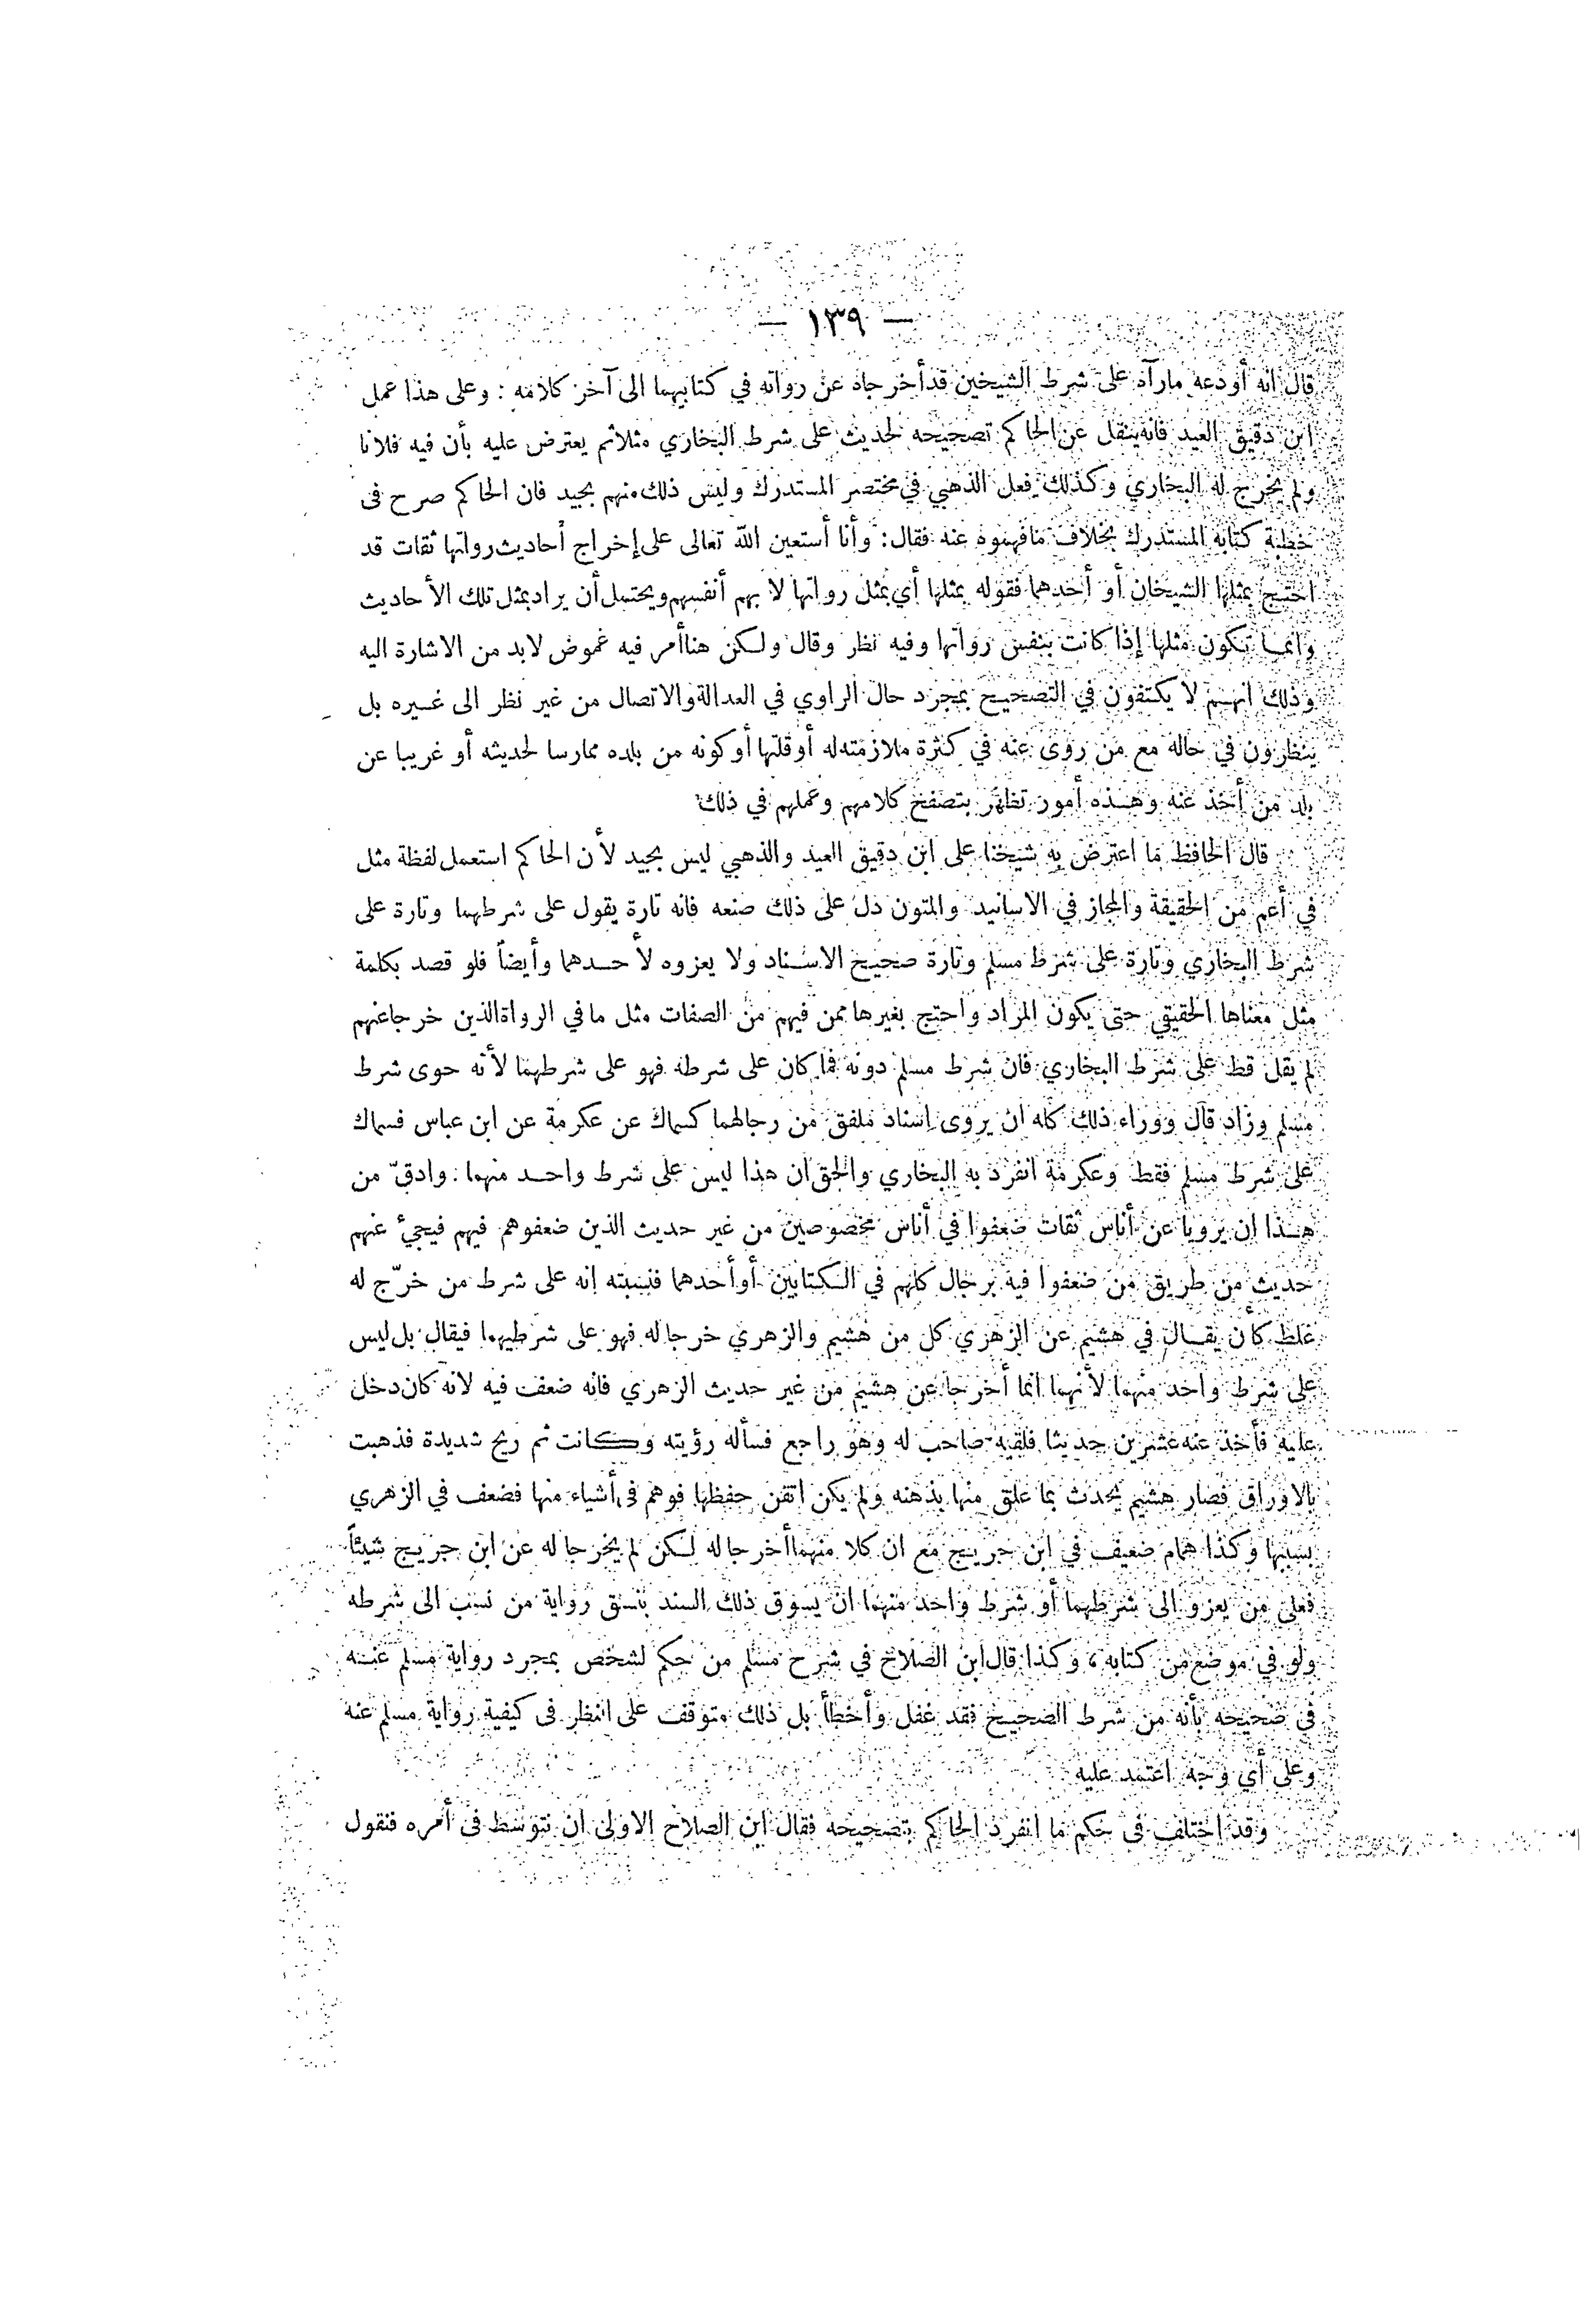 — ١٣٩ —
قال انه أودعه مارآه على شرط الشيخين قدأخرجاه عن رواته في كتابيهما الى آخر كلامه : وعلى هذا عمل
ابن دقيق العيد فانه ينقل عن الحاكم تصحيحه لحديث على شرط البخاري مثلاثم يعترض عليه بأن فيه فلانا
ولم يخرج له البخاري وكذلك فعل الذهبي في مختصر المستدرك وليس ذلك منهم بجيد فان الحاكم صرح فى
خطبة كتابه المستدرك بخلاف مافهموه عنه فقال: وأنا أستعين الله تعالى على إخراج أحاديث رواتها ثقات قد
احتج بمثلها الشيخان أو أحدهما فقوله بمثلها أي بمثل رواتها لا بهم أنفسهم ويحتمل أن يراد بمثل تلك الأحاديث
وانمـا تكون مثلها إذا كانت بنفس رواتها وفيه نظر وقال ولـكن هناأمر فيه غموض لابد من الاشارة اليه
وذلك انهـم لا يكتفون في التصحيح بمجرد حال الراوي في العدالة والاتصال من غير نظر الى غـيره بل
ينظرون في حاله مع من روى عنه في كثرة ملازمته له أوقلتها أو كونه من بلده ممارسا لحديثه أو غريبا عن
بلد من أخذ عنه وهـذه أمور تظهر بتصفح كلامهم وعملهم في ذلك
قال الحافظ ما اعترض به شيخنا على ابن دقيق العيد والذهبي ليس بجيد لأن الحاكم استعمل لفظة مثل
في أعم من الحقيقة والمجاز في الاسانيد والمتون دل على ذلك صنعه فانه تارة يقول على شرطهما وتارة على
شرط البخاري وتارة على شرط مسلم وتارة صحيح الاسـناد ولا يعزوه لأحـدهما وأيضاً فلو قصد بكلمة
مثل معناها الحقيقي حتى يكون المراد واحتج بغيرها ممن فيهم من الصفات مثل ما في الرواة الذين خرجاعنهم
لم يقل قط على شرط البخاري فان شرط مسلم دونه فما كان على شرطه فهو على شرطهما لأنه حوى شرط
مسلم وزاد قال ووراء ذلك كله ان يروى إسناد ملفق من رجالهما كسماك عن عكرمة عن ابن عباس فسماك
على شرط مسلم فقط وعكرمة انفرد به البخاري والحق ان هذا ليس على شرط واحـد منهما . وادقّ من
هـذا ان يرويا عن أناس ثقات ضعفوا في أناس مخصوصين من غير حديث الذين ضعفوهم فيهم فيجيء عنهم
حديث من طريق من ضعفوا فيه برجال كلهم في الـكتابين أو أحدهما فنسبته إنه على شرط من خرّج له
غلط كأن يقـال في هشيم عن الزهري كل من هشيم والزهري خرجا له فهو على شرطيهما فيقال بل ليس
على شرط واحد منهما لأنهما انما أخرجا عن هشيم من غير حديث الزهري فانه ضعف فيه لانه كان دخل
عليه فأخذ عنه عشرين حديثا فلقيه صاحب له وهو راجع فسأله رؤيته وكانت ثم ريح شديدة فذهبت
بالاوراق فصار هشيم يحدث بما علق منها بذهنه ولم يكن اتقن حفظها فوهم فى أشياء منها فضعف في الزهري
بسببها وكذا همام ضعيف في ابن جريـج مع ان كلا منهما أخرجا له لـكن لم يخرجا له عن ابن جريـج شيئاً
فعلى من يعزو الى شرطهما أو شرط واحد منهما ان يسوق ذلك السند بنسق رواية من نسب الى شرطه
ولو في موضع من كتابه ، وكذا قال ابن الصلاح في شرح مسلم من حكم لشخص بمجرد رواية مسلم عنـه
في صحيحه بأنه من شرط الصحيح فقد غفل وأخطأ بل ذلك متوقف على النظر فى كيفية رواية مسلم عنه
وعلى أي وجه اعتمد عليه
وقد اختلف فى حكم ما انفرد الحاكم بتصحيحه فقال ابن الصلاح الاولى ان نتوسط فى أمره فنقول